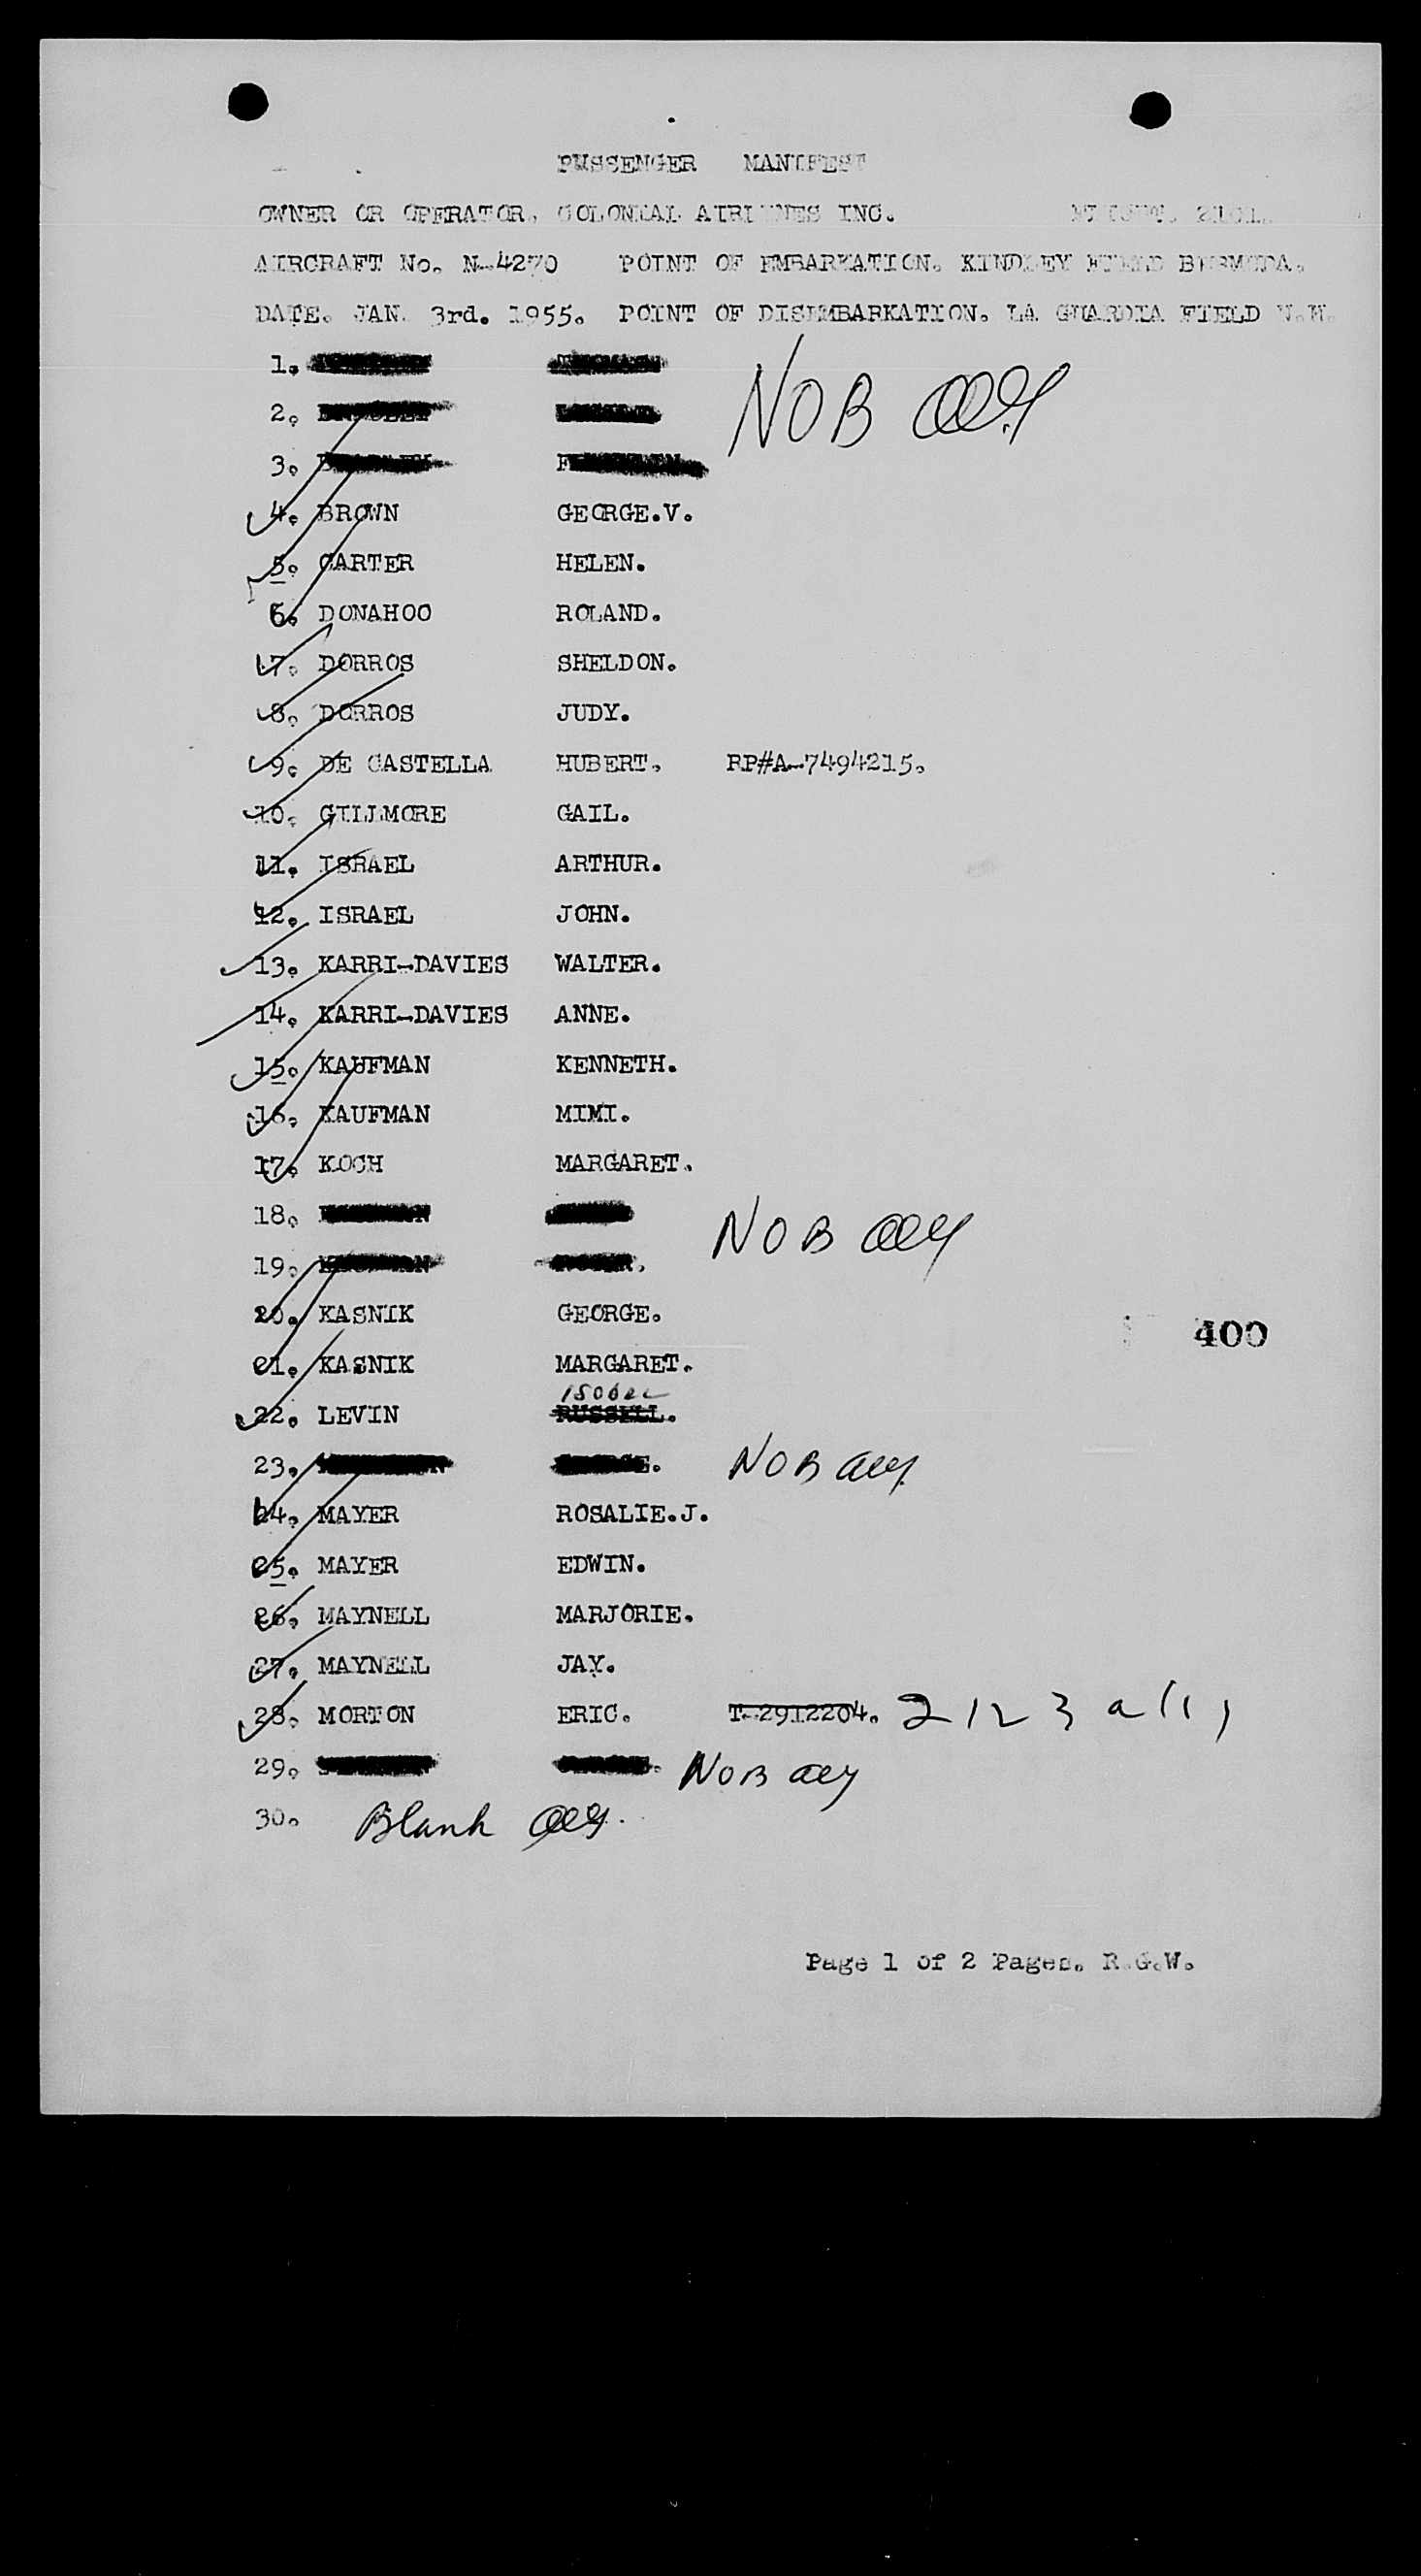 PUSSENGER MANIFEST
OWNER OR OPERATOR. COLONIAL AIRLINES INC.
AIRCRAFT No. N-4270 POINT OF EMBARKATION. KINDLEY FIELD BERMUDA.
DATE. JAN. 3rd. 1955. POINT OF DISEMBARKATION. LA GUARDIA FIELD
1.
2. NOB
3.
4. BROWN GEORGE.V.
5. CARTER HELEN.
6. DONAHOO ROLAND.
7. DORROS SHELDON.
8. DORROS JUDY.
9. DE CASTELLA HUBERT. RP#A-7494215.
10. GILLMORE GAIL.
11. ISRAEL ARTHUR.
12. ISRAEL JOHN.
13. KARRI-DAVIES WALTER.
14. KARRI-DAVIES ANNE.
15. KAUFMAN KENNETH.
16. KAUFMAN MIMI.
17. KOCH MARGARET.
18. NOB
19.
20. KASNIK GEORGE.
400
21. KASNIK MARGARET.
Isobel
22. LEVIN RUSSELL.
23. NOB
24. MAYER ROSALIE.J.
25. MAYER EDWIN.
26. MAYNELL MARJORIE.
27. MAYNELL JAY.
28. MORTON ERIC. T-2912204.
29. NOB
30. Blank
Page 1 of 2 Pages. R.G.W.